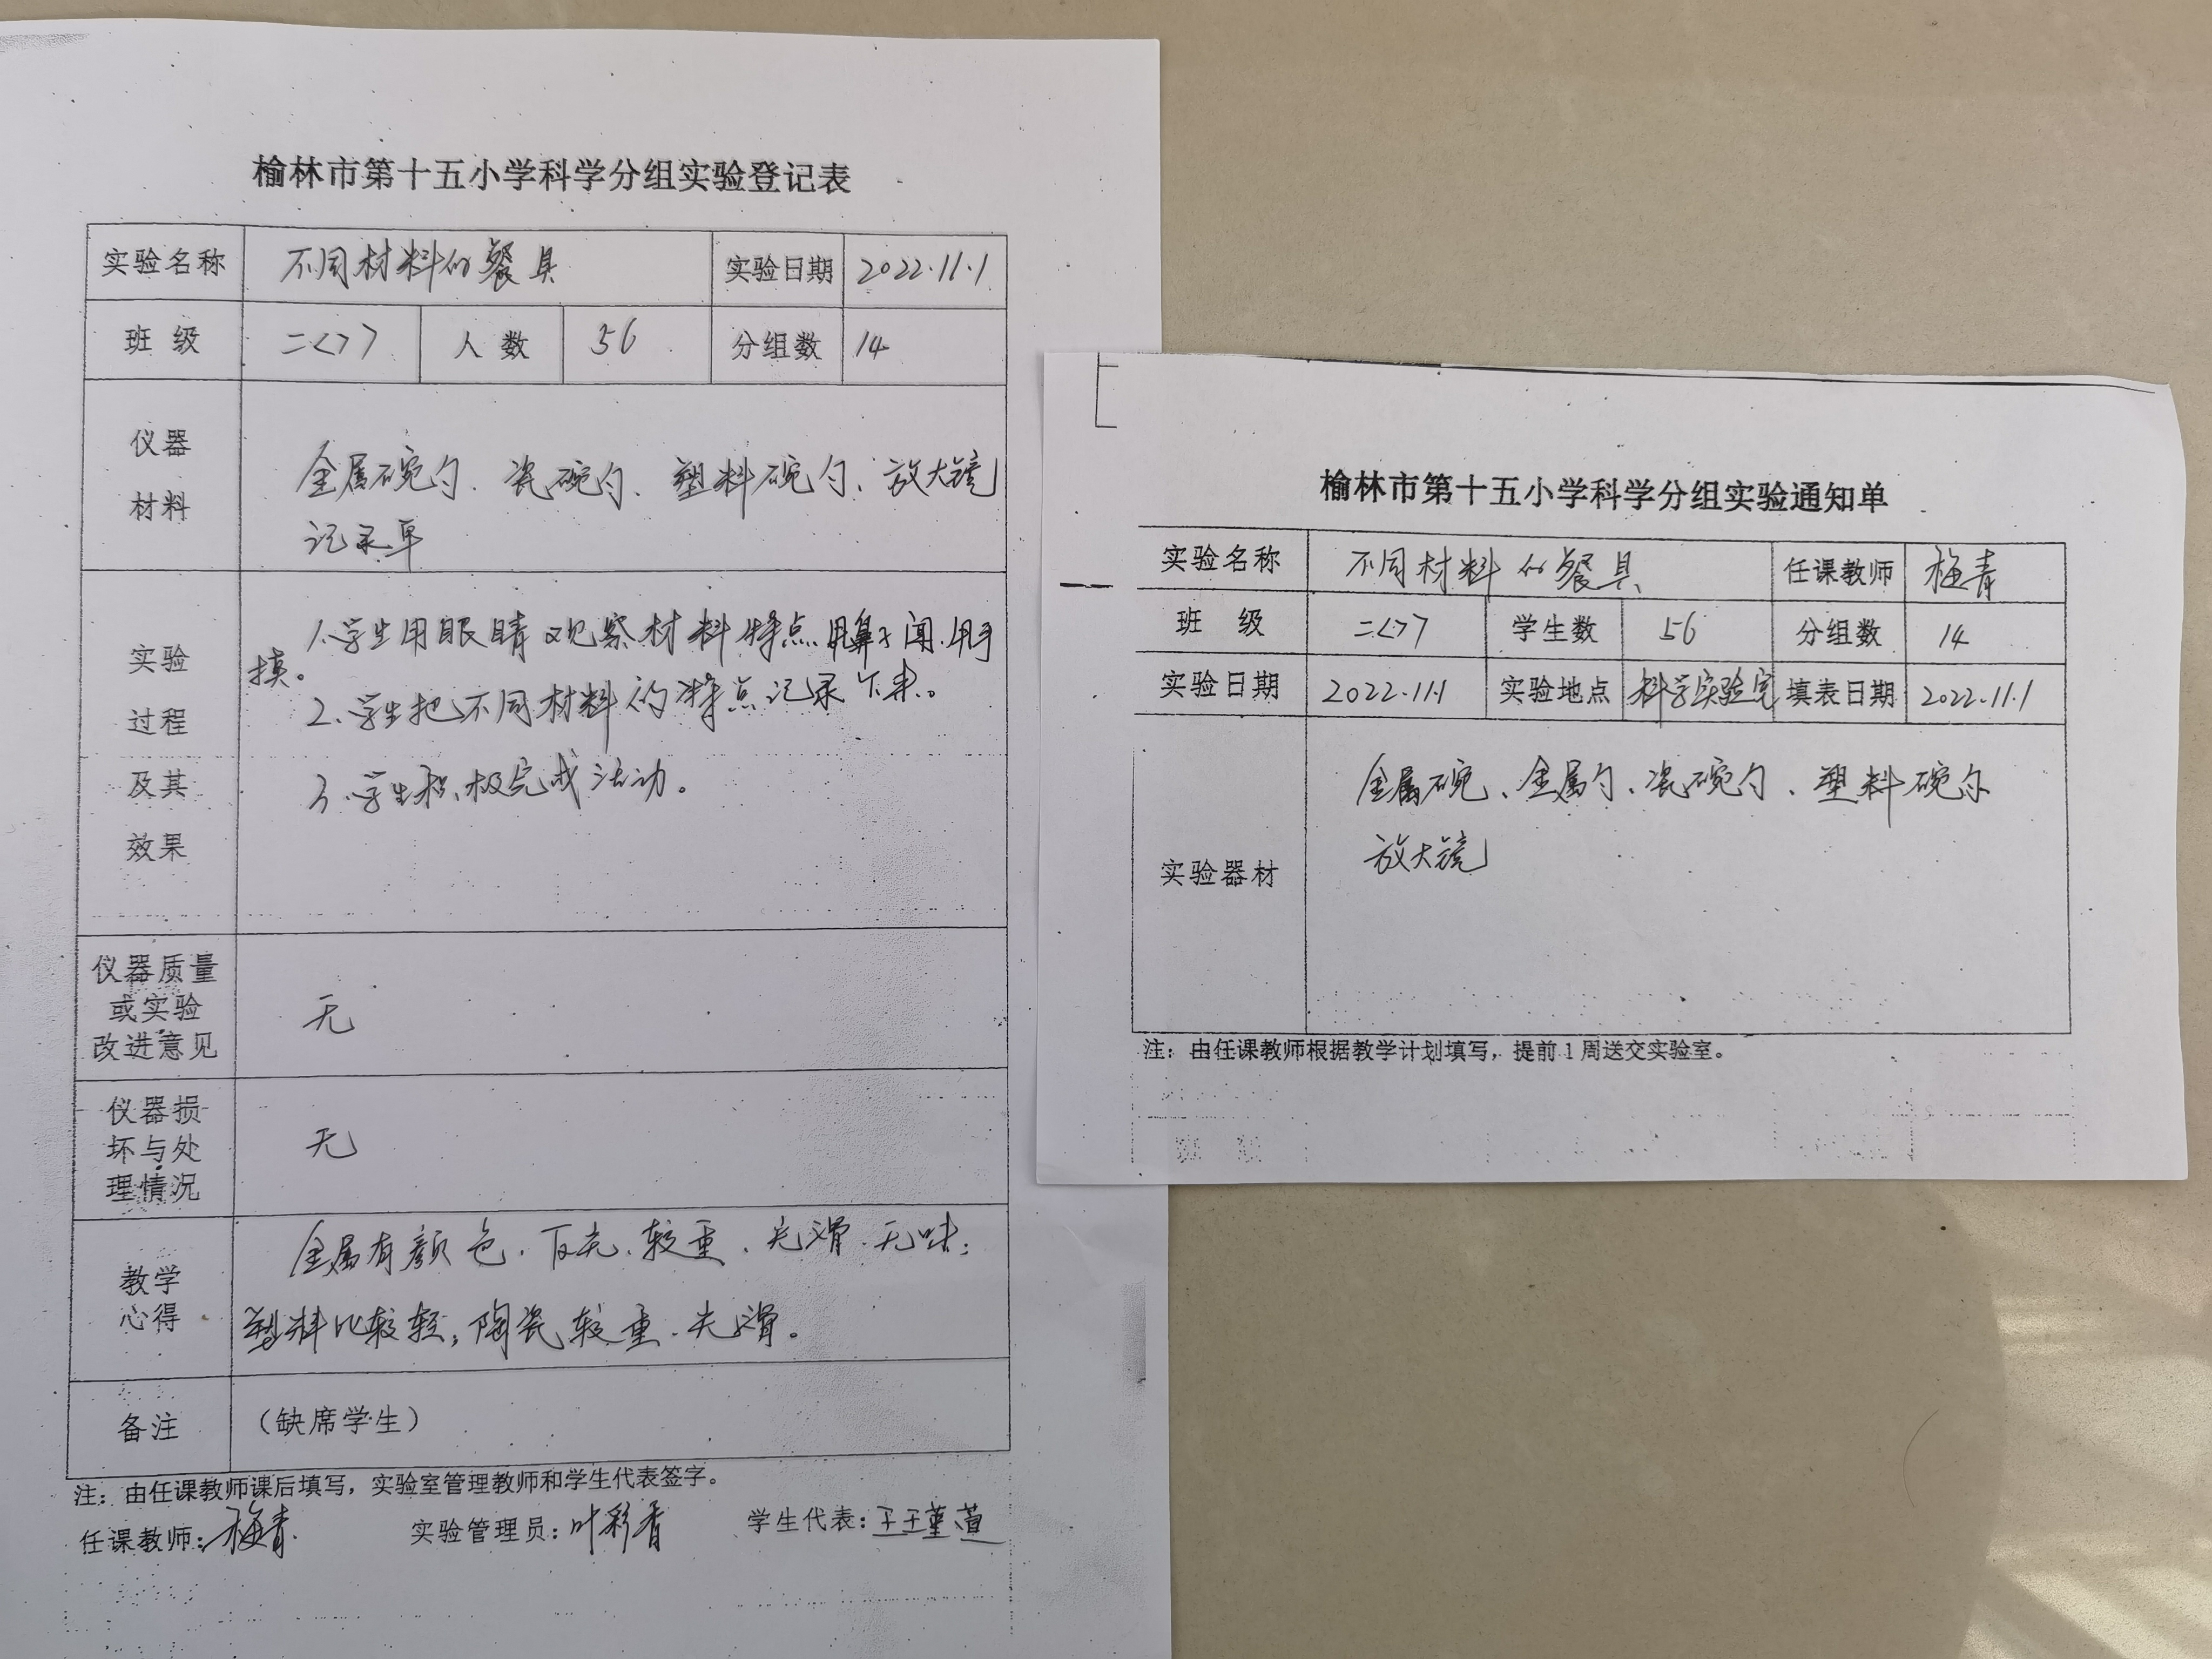 榆林市第十五小学科学分组实验登记表
实验名称 不同材料的餐具 实验日期 2022.11.1
班 级 二<7> 人 数 56 分组数 14
仪器
材料
金属碗勺、瓷碗勺、塑料碗勺、放大镜
记录单
实验
过程
及其
效果
1.学生用眼睛观察材料特点.用鼻子闻.用手
摸。
2.学生把不同材料的特点记录下来。
3.学生积极完成活动。
仪器质量
或实验
改进意见
无
仪器损
坏与处
理情况
无
教学
心得
金属有颜色.反光.较重.光滑.无味;
塑料比较轻;陶瓷较重.光滑。
备注 （缺席学生）
注：由任课教师课后填写，实验室管理教师和学生代表签字。
任课教师: 梅青 实验管理员: 叶彩香 学生代表:
榆林市第十五小学科学分组实验通知单
实验名称 不同材料的餐具 任课教师 梅青
班 级 二<7> 学生数 56 分组数 14
实验日期 2022.11.1 实验地点 科学实验室 填表日期 2022.11.1
实验器材
金属碗、金属勺、瓷碗勺、塑料碗勺
放大镜
注：由任课教师根据教学计划填写，提前1周送交实验室。